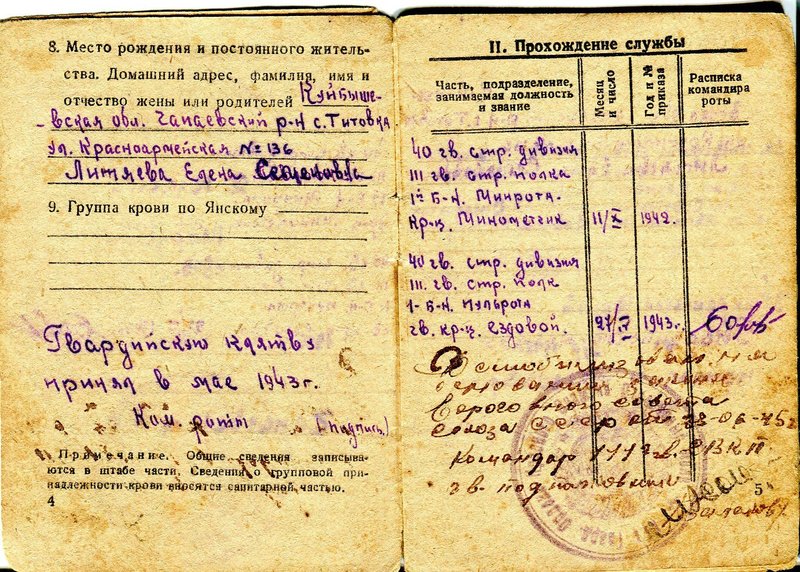 8. Место рождения и постоянного житель-
ства. Домашний адрес, фамилия, имя и
отчество жены или родителей Куйбыше-
-вская обл. Чапаевский р-н с. Титовка
ул. Красноармейская № 136
Литяева Елена Семеновна
9. Группа крови по Янскому
Гвардийскую клятву
принял в мае 1943г.
Ком. роты (подпись)
Примечание. Общие сведения записыва-
ются в штабе части. Сведения о групповой при-
надлежности крови вносятся санитарной частью.
4
II. Прохождение службы
Часть, подразделение,
занимаемая должность
и звание
Месяц
и число
Год и №
приказа
Расписка
командира
роты
40 гв. стр. дивизия
111 гв. стр. полка
1й Б-н. Минрота.
Кр-ц. Минометчик 11/X 1942.
40 гв. стр. дивизия
111 гв. стр. полк
1- Б-н. Пульрота
гв. кр-ц. Ездовой. 1943г.
Демобилизован на
основании указа
Верховного совета
Союза СССР от 23-06-45г
Командир 111 гв.
гв. подполковник
5